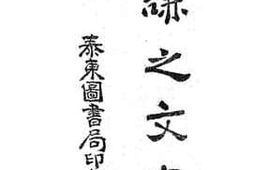 之文
泰東圖書局印